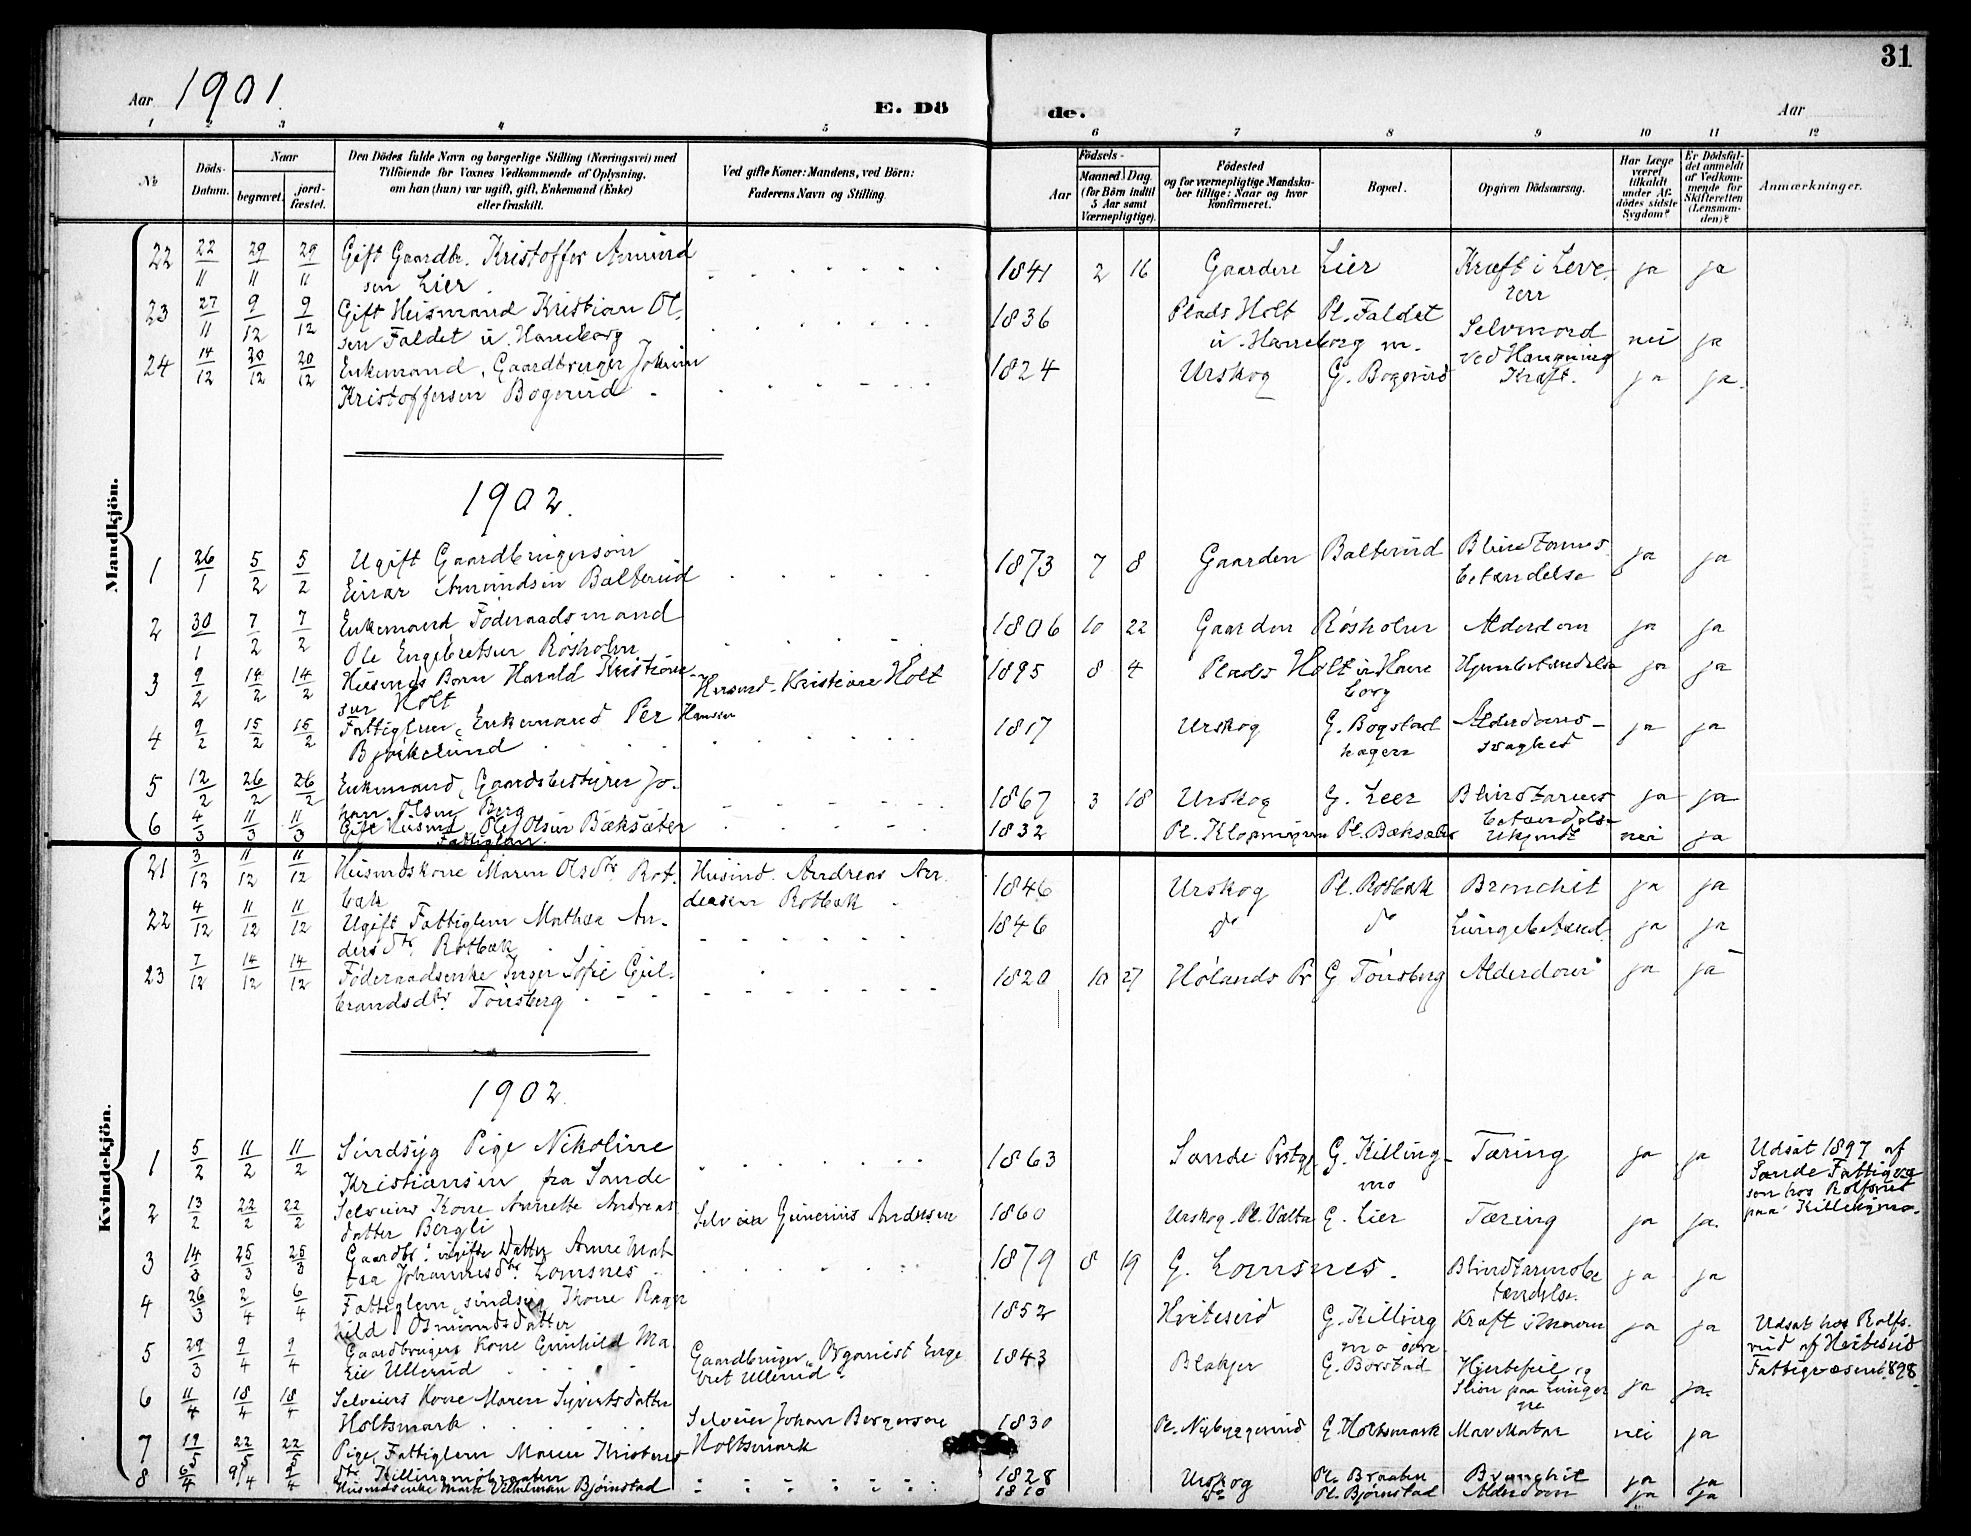 31
Aar 1901. E. Dö de. Aar
1 2 3 4 5 6 7 8 9 10 11 12
No
Döds-Datum.
Naar
begravet.
jord-fæstet.
Den Dödes fulde Navn og borgerlige Stilling (Næringsvei) med
Tilföiende for Voxnes Vedkommende af Oplysning,
om han (hun) var ugift, gift, Enkemand (Enke)
eller fraskilt.
Ved gifte Koner: Mandens, ved Börn:
Faderens Navn og Stilling.
Födsels-
Aar
Maaned Dag
(for Börn indtil
5 Aar samt
Værnepligtige).
Födested
og for værnepligtige Mandska-
ber tillige: Naar og hvor
konfirmeret.
Bopæl.
Opgiven Dödsaarsag.
Har Læge
været
tilkaldt
under Af-
dödes sidste
Sygdom?
Er Dödsfal-
det anmeldt
af Vedkom-
mende for
Skifteretten
(Lensman-
den)?
Anmærkninger.
Mandkjön.
22 22/11 29/11 29/11 Gift Gaardbr. Kristoffer Amund 1841 2 16 Gaarden Lier Kræft i Leve ja ja
sen Lier. ren
23 27/11 9/12 9/12 Gift Husmand Kristian Ol. 1836 Plads Holt Pl. Faldet Selvmord nei ja
sen Faldet u. Haneborg u. Haneborg ved Hængning
24 14/12 20/12 20/12 Enkemand, Gaardbruger Johan 1824 Urskog G. Bogerud Kræft. ja ja.
Kristoffersen Bogerud
1902.
1 26/1 5/2 5/2 Ugift Gaardbrugersøn 1873 7 8 Gaarden Balterud Blindtarms ja ja
Einar Amundsen Balterud betændelse
2 30/1 7/2 7/2 Enkemand Föderaadsmand 1806 10 22 Gaarden Røsholm Alderdom ja ja
Ole Engebretsen Røsholm
3 9/2 14/2 14/2 Husm.s Barn Harald Kristian 1895 8 4 Plads Holt u. Hane ja ja
sen Holt Husmd. Kristian Holt borg
4 9/2 15/2 15/2 Fattiglem, Enkemand Per Hansen 1817 Urskog G. Bogstad Alderdoms- ja ja
Bjørkelund hagen svaghed
5 12/2 26/2 26/2 Enkemand, Gaardsbestyrer Jo- 1867 3 18 Urskog G. Leer Blindtarms ja ja
han Olsen Berg betændelse
6 4/3 11/3 11/3 Gift Husmd. Ole Olsen Bæksæter 1832 Pl. Bæksæter Ukjendt nei ja
Fattiglem.
Kvindekjön.
21 3/12 11/12 11/12 Husmdskone Maren Olsdtr. Rot- Husmd. Andreas An 1846 Urskog Pl. Rotbæk Bronchit ja ja
bæk dersen Rotbæk
22 4/12 11/12 11/12 Ugift Fattiglem Mathea An- 1846 do do Lungebetænd. ja ja
dersdtr. Rotbæk
23 7/12 14/12 14/12 Föderaadsenke Inger Sofie Gul- 1820 10 27 Hølands Pr G Tønsberg Alderdom ja ja
brandsdtr. Tønsberg
1902.
1 5/2 11/2 11/2 Sindsyg Pige Nikoline 1863 Sande Prstgj. G. Killing- Tæring ja ja Udsat 1897 af
Kristiansen fra Sande mo Sande Fattigv.
som hos Rolfsrud
paa Killingmo.
2 13/2 22/2 22/2 Selveiers Kone Annette Andreas Selveier Gunerius Andersen 1860 Urskog. G. Lier Tæring ja ja.
datter Bergli
3 14/3 25/3 25/3 Gaardbr. ugifte Datter Anne Mat 1879 8 19 G. Lomsnes. Blindtarmsbe ja ja
ea Johannesdtr. Lomsnes tændelse.
4 26/3 2/4 6/4 Fattiglem, sindsyg Kone Ragn 1852 Hviteseid G. Killing Kræft i Maven ja ja Udsat hos Rolfs-
hild Osmundsdatter mo rud af Hviteseid
Fattigvæsen 1898.
5 29/3 9/4 9/4 Gaardbrugers Kone Gunhild Ma Gaardbruger, Organist Enge 1843 Blakjer G. Borstad Hjertefeil og
rie Ullerud bret Ullerud Slim paa Lunger ja ja
ne
6 11/4 18/4 18/4 Selveiers Kone Maren Sivertsdatter Selveier Johan Bergersen 1830 Pl. Nybyggerud G. Holtsmark nei ja
Holtsmark Holtsmark
7 19/5 22/5 22/5 Pige, Fattiglem Maren Kristens 1828 Urskog Pl. Braaten Bronchit ja ja
dtr. Killingmobraaten
8 6/4 9/4 9/4 Husmdsenke Bjørnstad 1810 do Pl. Bjørnstad Alderdom ja ja